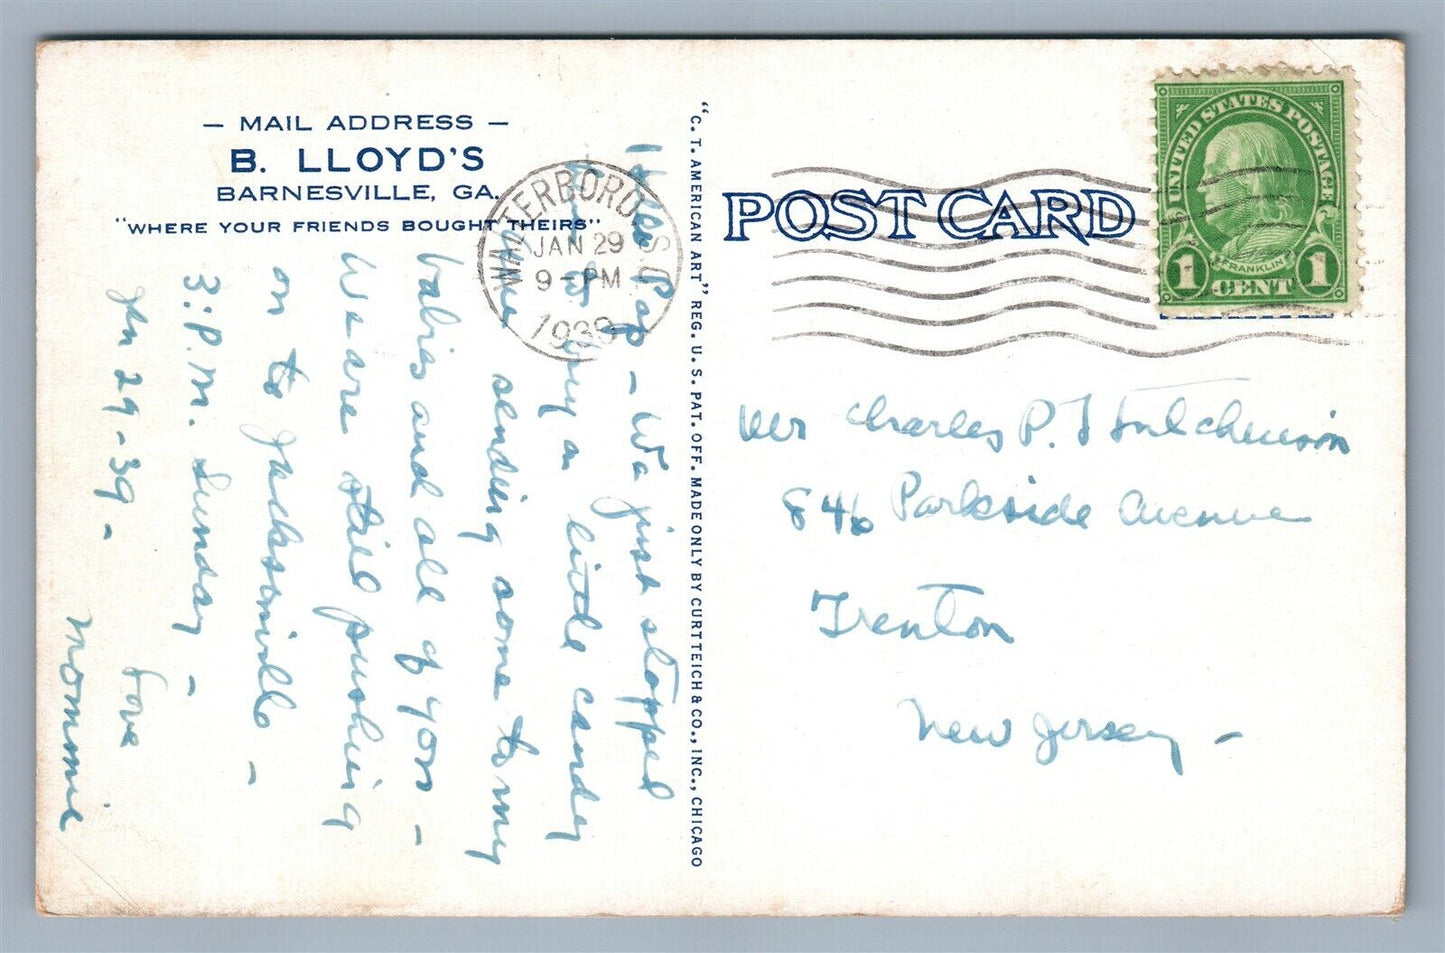 — MAIL ADDRESS —
B. LLOYD'S
BARNESVILLE, GA.
"WHERE YOUR FRIENDS BOUGHT THEIRS"
WALTERBORO S.C.
JAN 29
9 – PM
1939
Pap – We just stopped
to buy a little candy
sending some to my
babies and all of you –
We are still pushing
on to Jacksonville –
3: P.M. Sunday –
Jan 29 – 39 – Love
Mommie
"C. T. AMERICAN ART" REG. U. S. PAT. OFF. MADE ONLY BY CURT TEICH & CO., INC., CHICAGO
POST CARD
UNITED STATES POSTAGE
FRANKLIN
1 CENT 1
Mr Charles P. Hutchinson
846 Parkside Avenue
Trenton
New Jersey –